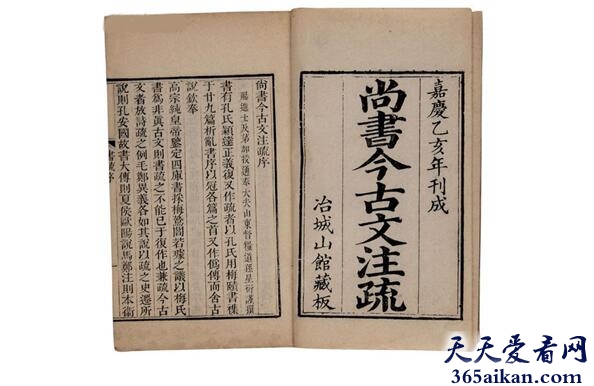 嘉慶乙亥年刊成
尚書今古文注疏
冶城山館藏板
尚書今古文注疏序
賜進士及第加授通奉大夫山東督糧道孫星衍謹撰
書有孔氏穎達正義復又作疏者以孔氏用梅賾書襍
于廿九篇析亂書序以冠各篇之首又作僞傳而舍古
說欽奉
高宗純皇帝鑒定四庫書採梅鷟閻若璩之議以梅氏
書爲非眞古文則書疏之不能已于復作也兼疏今古
文者放詩疏之例毛鄭異義各如其說以疏之史遷所
說則孔安國故書大傳則夏侯歐陽說馬鄭注則本衞
書疏序
天天爱看网
365aikan.com